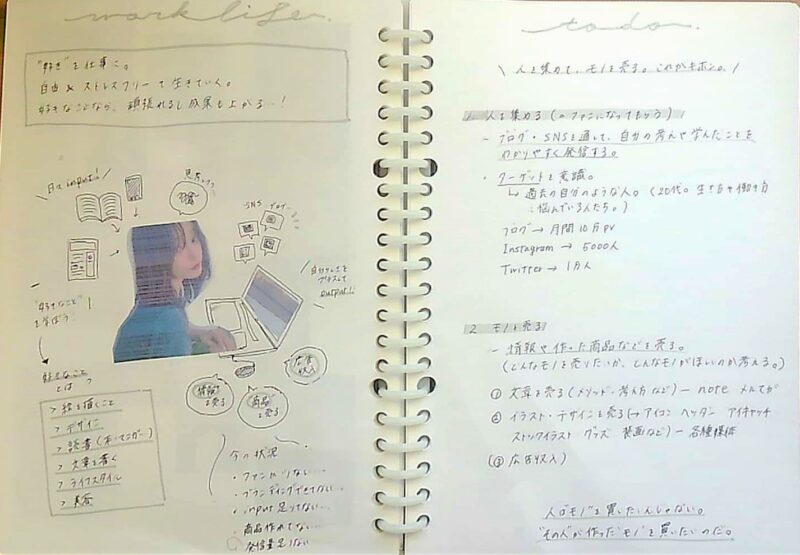 work life.
"好き"を仕事に。
自由&ストレスフリーで生きていく。
好きなことなら、頑張れるし成果も上がる…!
日々input!
思考
SNS ブログ…
自分らしさを
プラスして
output!!
"好きなこと"
を学ぼう
好きなこと
とは?
> 絵を描くこと
> デザイン
> 読書
> 文章を書く
> ライフスタイル
> 美容
情報
を売る
商品
を売る
広告
収入
今の状況
・ファンがいない…
・ブランディングできてない…
・input足りてない…
・商品作れてない…
発信量足りない
to do.
\ 人を集めて、モノを売る。これがキホン。/
1. 人を集める(=ファンになってもらう)
- ブログ・SNSを通して、自分の考えや学んだことを
わかりやすく発信する。
・ターゲットを意識。
↳ 過去の自分のような人。(20代。生き方や働き方
に悩んでいる人たち。)
ブログ → 月間10万PV
Instagram → 5000人
Twitter → 1万人
2. モノを売る
- 情報や作った商品などを売る。
(どんなモノを売りたいか、どんなモノがほしいのか考える。)
① 文章を売る(メソッド・考え方など) ー note メルマガ
② イラスト・デザインを売る(→アイコン ヘッダー アイキャッチ
ストックイラスト グッズ 装画など) ー 各種媒体
(③ 広告収入)
人は"モノ"を買いたいんじゃない。
"その人"が作った"モノ"を買いたいのだ。